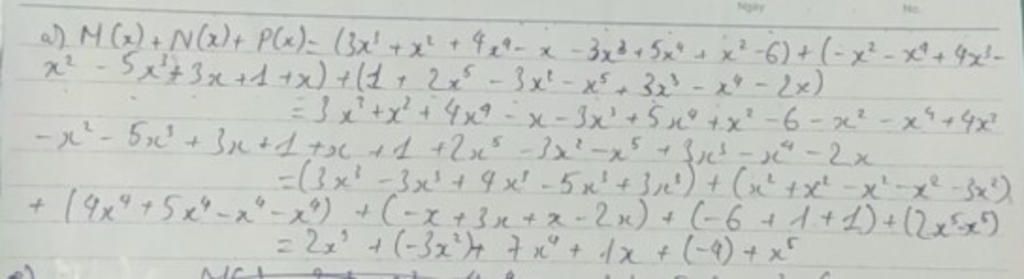 Ngày No.
a) M(x) + N(x) + P(x) = (3x³ + x² + 4x⁴ - x - 3x³ + 5x⁴ + x² - 6) + (-x² - x⁴ + 4x³ -
x² - 5x³ + 3x + 1 + x) + (1 + 2x⁵ - 3x² - x⁵ + 3x³ - x⁴ - 2x)
= 3x³ + x² + 4x⁴ - x - 3x³ + 5x⁴ + x² - 6 - x² - x⁴ + 4x³
- x² - 5x³ + 3x + 1 + x + 1 + 2x⁵ - 3x² - x⁵ + 3x³ - x⁴ - 2x
= (3x³ - 3x³ + 4x³ - 5x³ + 3x³) + (x² + x² - x² - x² - 3x²)
+ (4x⁴ + 5x⁴ - x⁴ - x⁴) + (-x + 3x + x - 2x) + (-6 + 1 + 1) + (2x⁵ - x⁵)
= 2x³ + (-3x²) + 7x⁴ + 1x + (-4) + x⁵